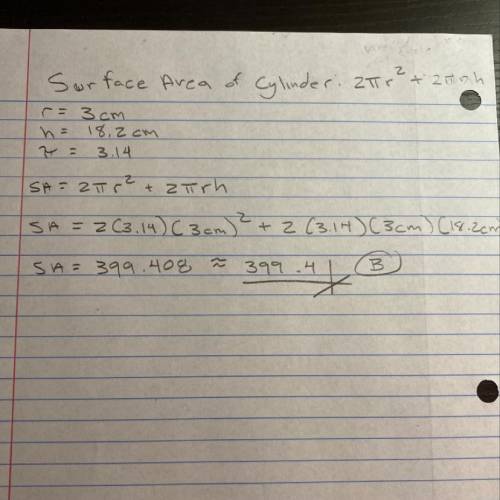 Surface Area of Cylinder: 2πr² + 2πrh
r = 3cm
h = 18.2cm
π = 3.14
SA = 2πr² + 2πrh
SA = 2(3.14)(3cm)² + 2(3.14)(3cm)(18.2cm
SA = 399.408 ≈ 399.4 B